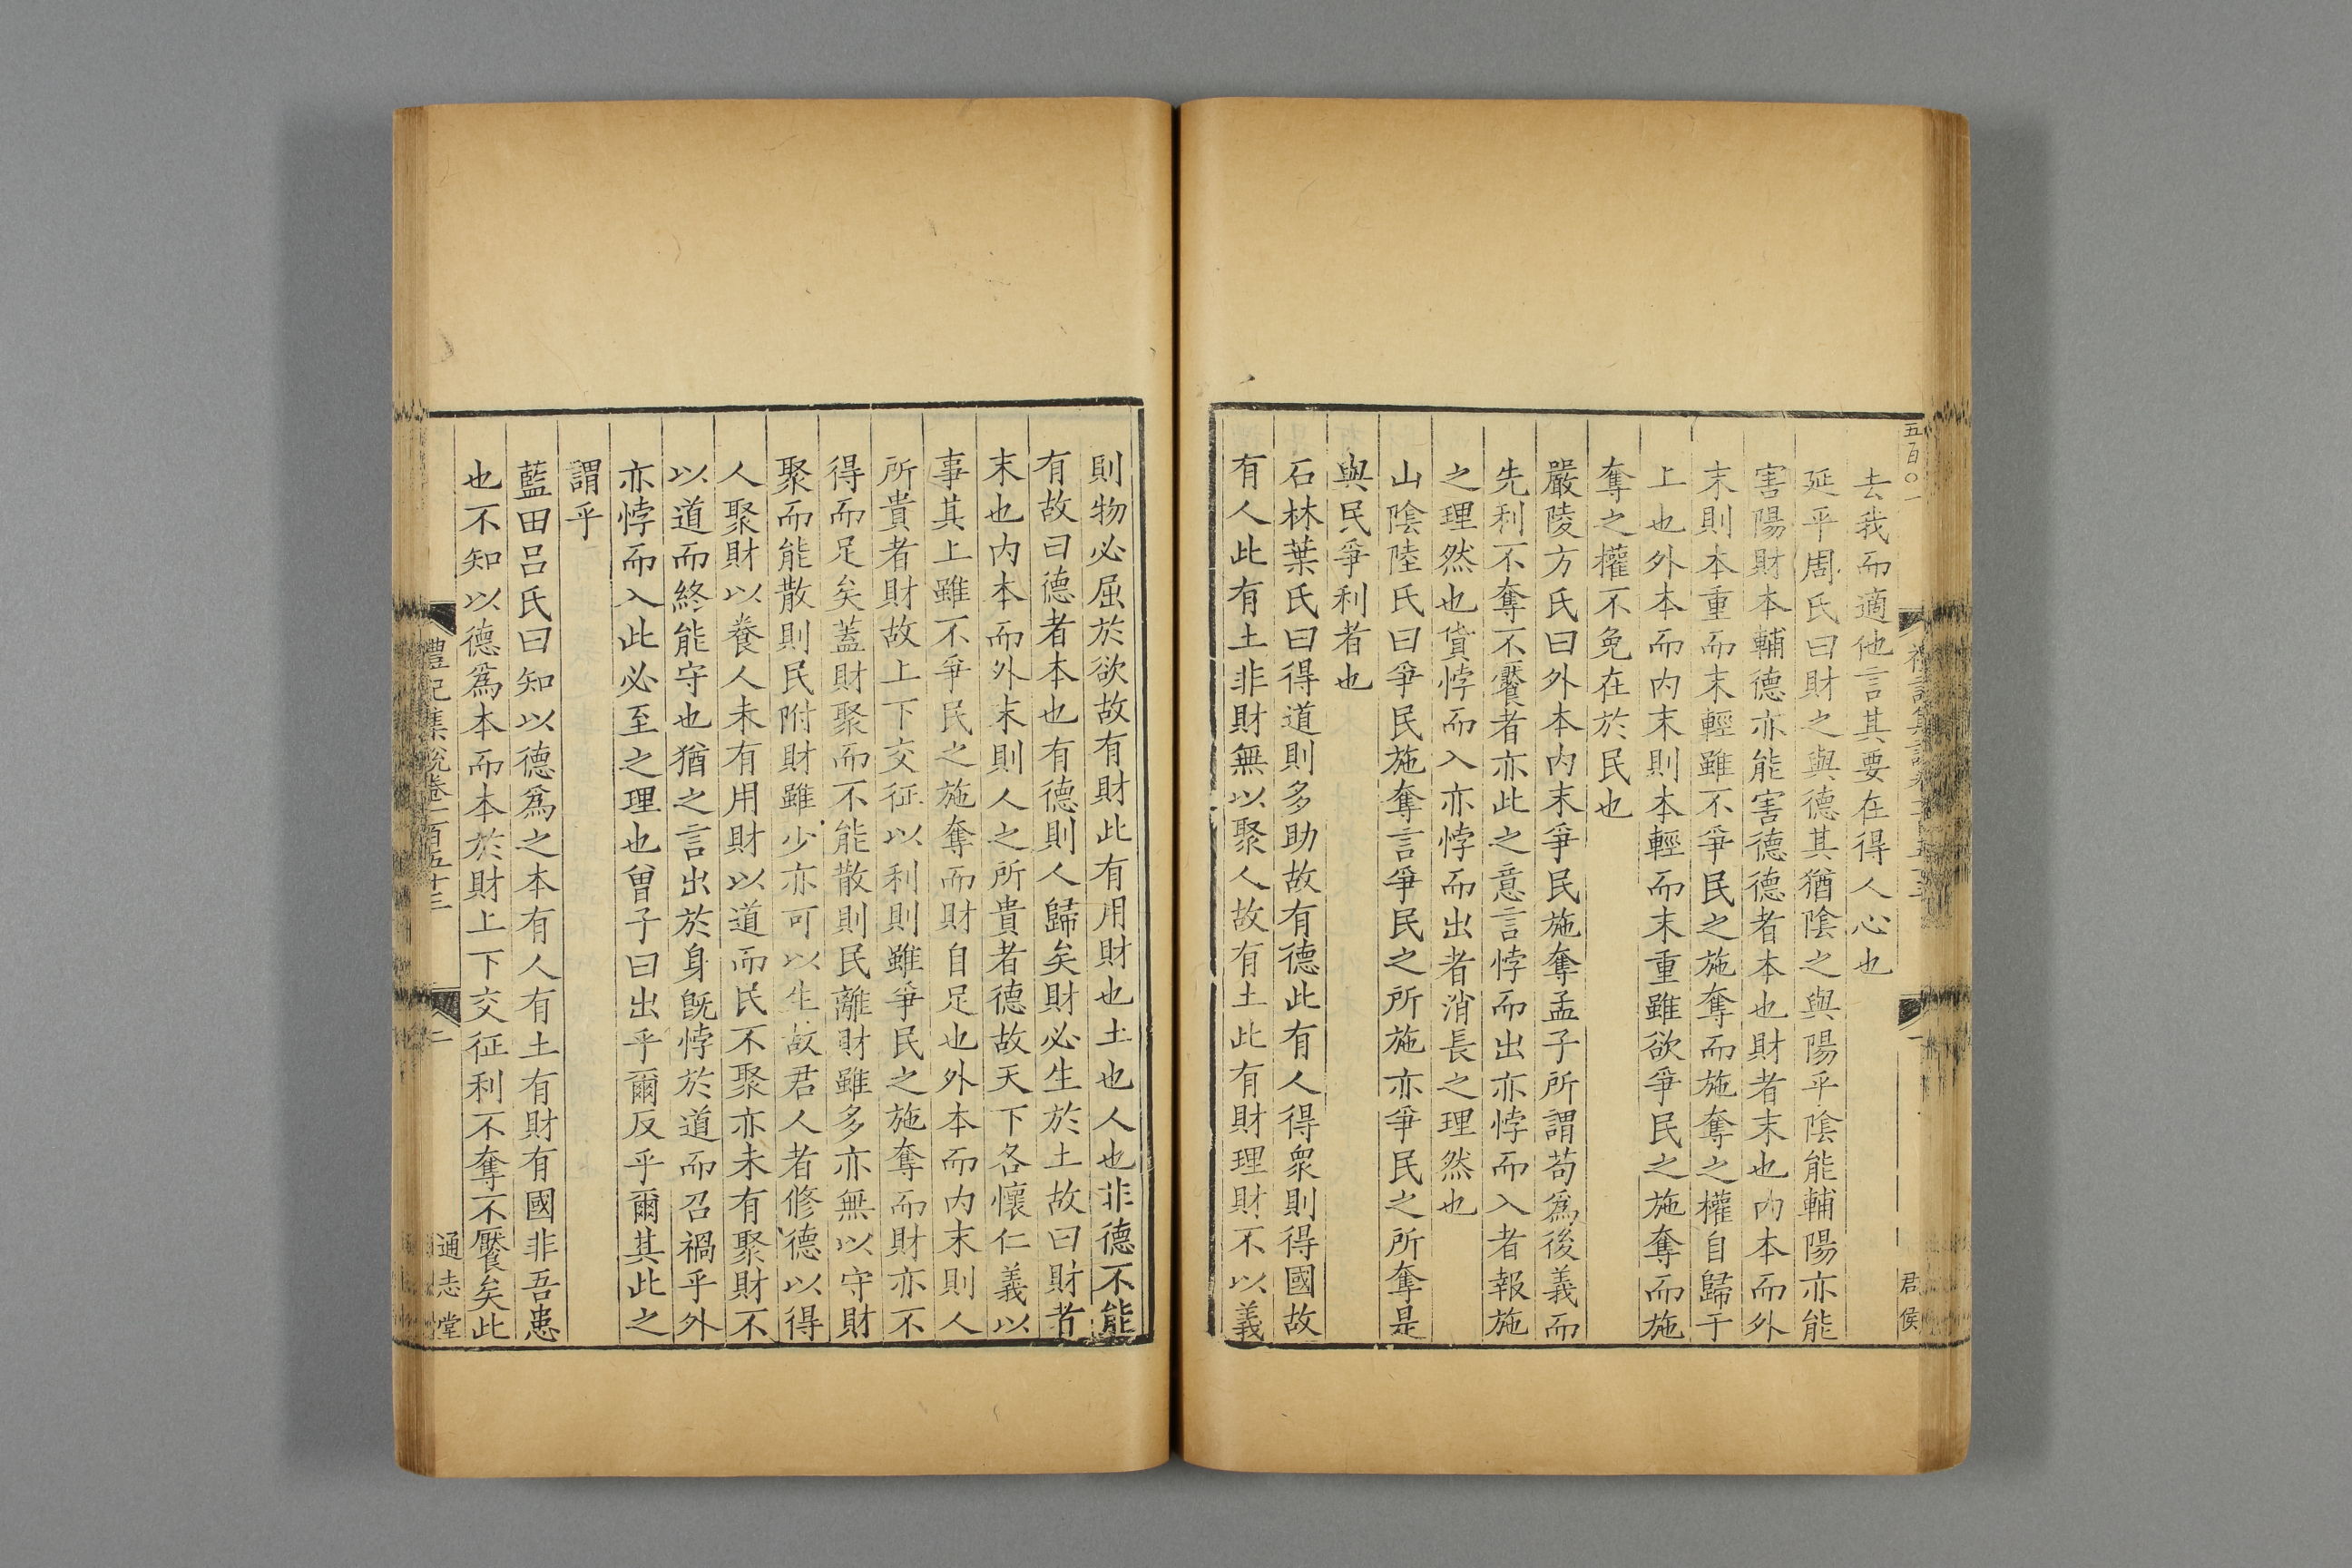 五百〇一
去我而適他言其要在得人心也
延平周氏曰財之與德其猶陰之與陽乎陰能輔陽亦能
害陽財本輔德亦能害德德者本也財者末也内本而外
末則本重而末輕雖不爭民之施奪而施奪之權自歸于
上也外本而内末則本輕而末重雖欲爭民之施奪而施
奪之權不免在於民也
嚴陵方氏曰外本内末爭民施奪孟子所謂苟爲後義而
先利不奪不饜者亦此之意言悖而出亦悖而入者報施
之理然也貨悖而入亦悖而出者消長之理然也
山陰陸氏曰爭民施奪言爭民之所施亦爭民之所奪是
與民爭利者也
石林葉氏曰得道則多助故有德此有人得衆則得國故
有人此有土非財無以聚人故有土此有財理財不以義
君侯
則物必屈於欲故有財此有用財也土也人也非德不能
有故曰德者本也有德則人歸矣財必生於土故曰財者
末也内本而外末則人之所貴者德故天下各懷仁義以
事其上雖不爭民之施奪而財自足也外本而内末則人
所貴者財故上下交征以利則雖爭民之施奪而財亦不
得而足矣蓋財聚而不能散則民離財雖多亦無以守財
聚而能散則民附財雖少亦可以生故君人者修德以得
人聚財以養人未有用財以道而民不聚亦未有聚財不
以道而終能守也猶之言出於身旣悖於道而召禍乎外
亦悖而入此必至之理也曾子曰出乎爾反乎爾其此之
謂乎
藍田呂氏曰知以德爲之本有人有土有財有國非吾患
也不知以德爲本而本於財上下交征利不奪不饜矣此
禮記集說卷一百五十三
二
通志堂